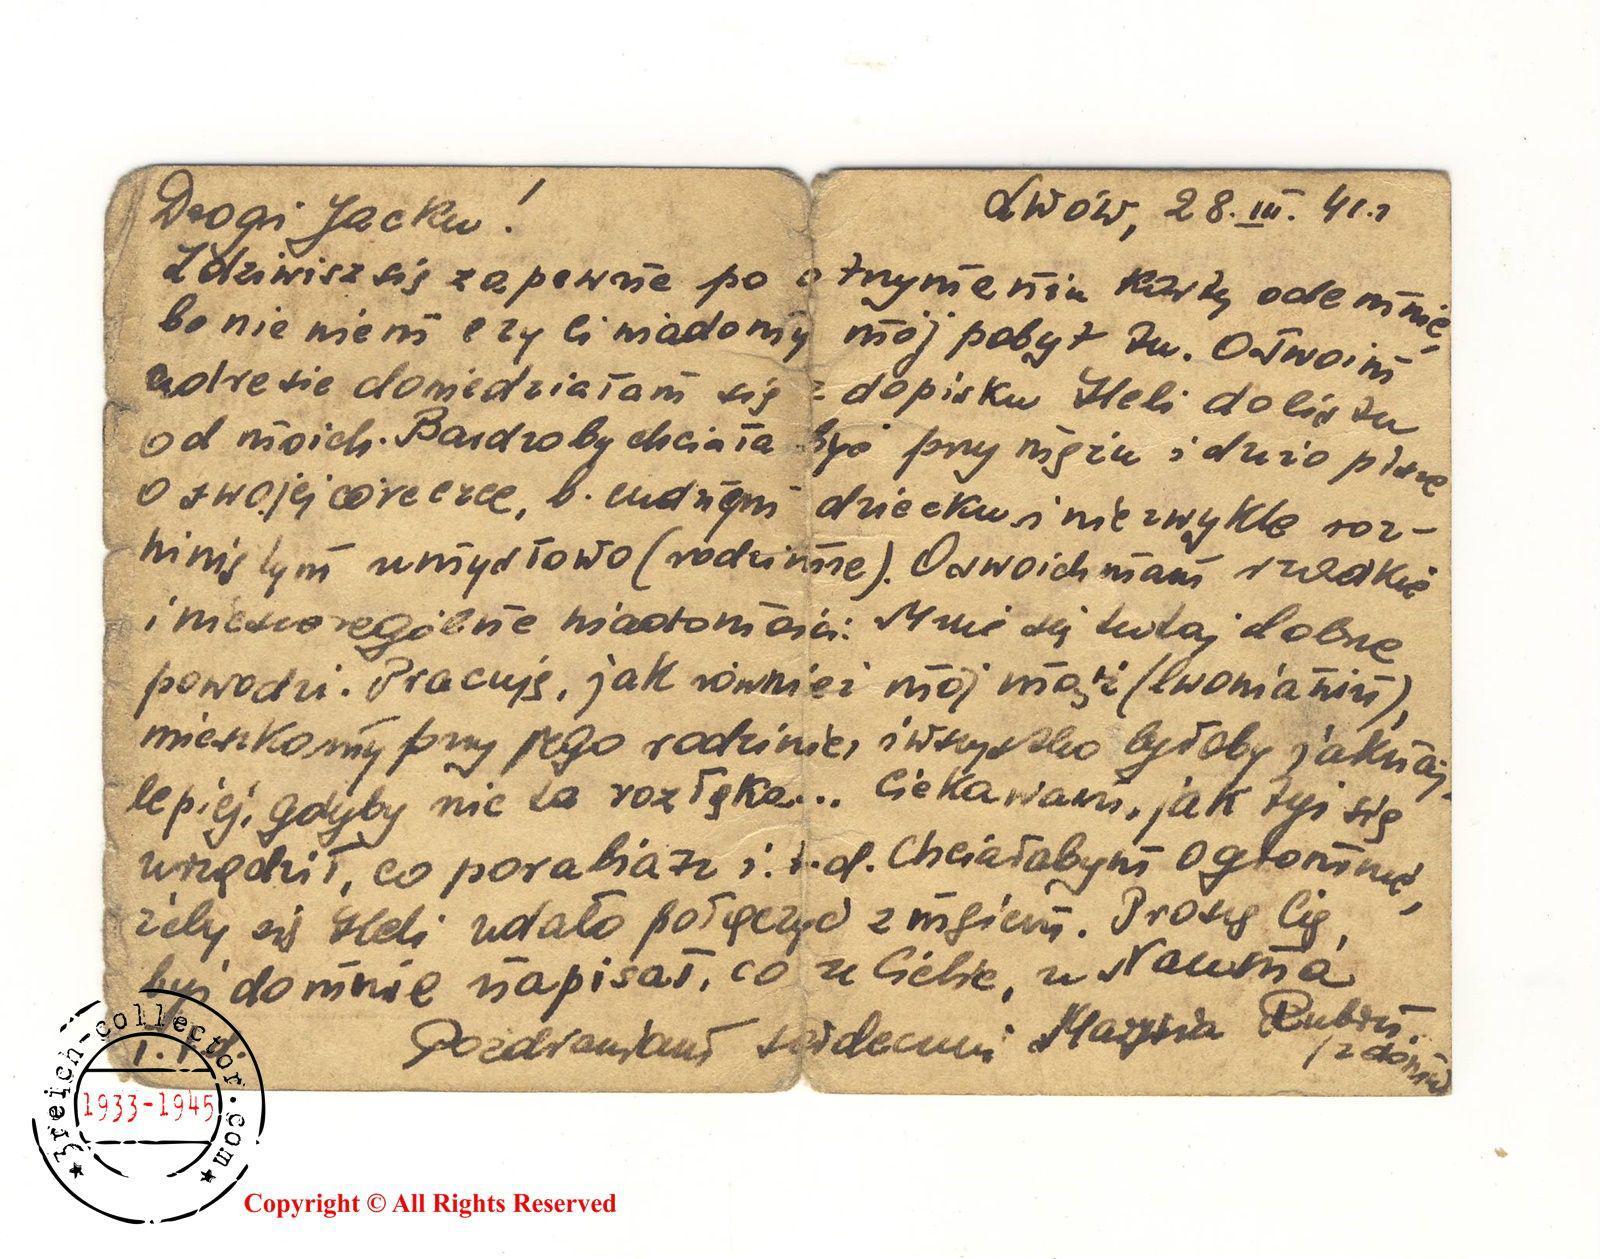 Drogi Jacku!
Lwów, 28.III.41.r
Zdziwisz się zapewne po otrzymaniu karty odemnie,
bo nie wiem czy Ci wiadomy mój pobyt tu. O Twoim
adresie dowiedziałam się z dopisku Heli do listu
od moich. Bardzo by chciała być przy mężu i dużo pisze
o swojej córeczce, b. cudnem dziecku i niezwykle roz-
winiętym umysłowo (rodzinne). O swoich mam rzadkie
i nieszczególne wiadomości. Mnie się tutaj dobrze
powodzi. Pracuję, jak również mój mąż (lwowianin),
mieszkamy przy jego rodzinie, i wszystko byłoby jaknaj-
lepiej, gdyby nie ta rozłąka... Ciekawam, jak Tyś się
urządził, co porabiasz i.t.d. Chciałabym ogromnie,
żeby się Heli udało połączyć z mężem. Proszę Cię,
byś do mnie napisał, co u Ciebie, u Nauma
i.t.d.
Pozdrawiam serdecznie Marysia Rubin
/z domu
3reich-collector.com
1933-1945
Copyright © All Rights Reserved